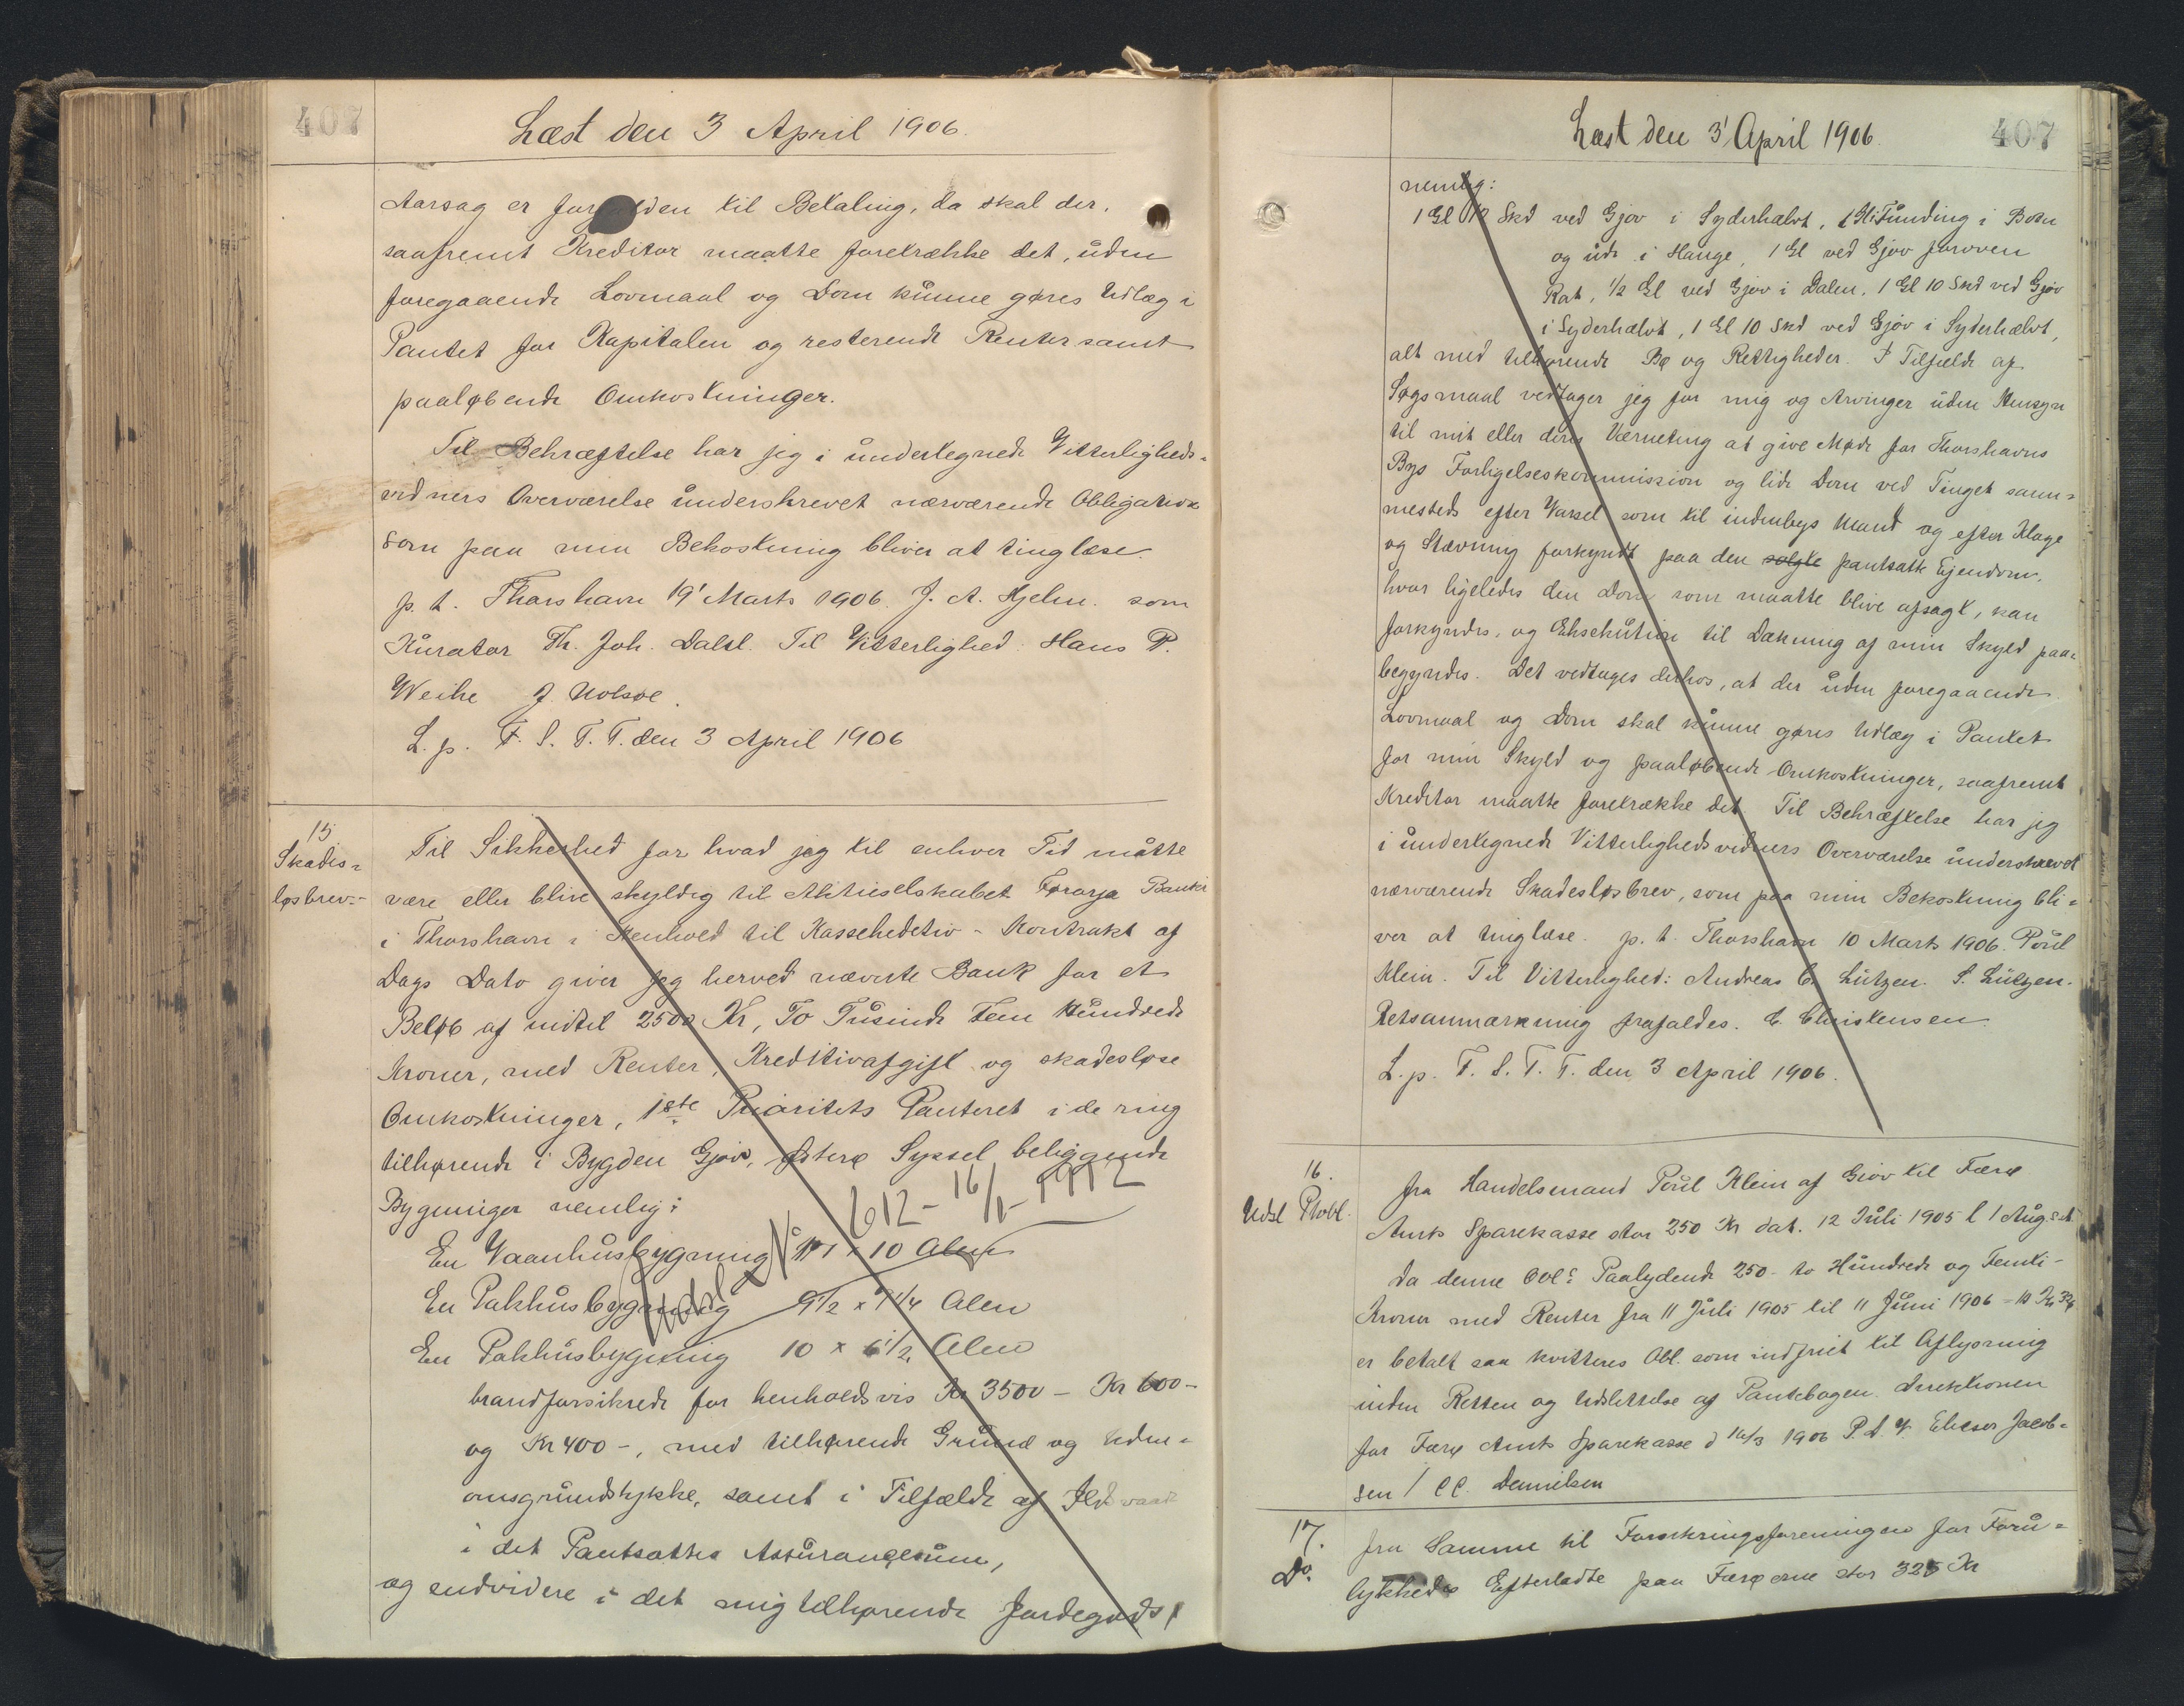 407
Læst den 3 April 1906.
Aarsag er forfalden til Betaling, da skal der,
saafremt Kreditor maatte foretrække det, uden
foregaaende Lovmaal og Dom kunne gøres Udlæg i
Pantet for Kapitalen og resterende Renter samt
paaløbende Omkostninger.
Til Bekræftelse har jeg i undertegnede Vitterligheds-
vidners Overværelse underskrevet nærværende Obligation
som paa min Bekostning bliver at tinglæse.
p. t. Thorshavn 19' Marts 1906. J. A. Hjelm. som
Kurator Th. Joh. Dahl. Til Vitterlighed: Hans P.
Weihe J. Nolsøe.
L. p. F. S. T. T. den 3 April 1906
15
Skades-
løsbrev.-
Til Sikkerhed for hvad jeg til enhver Tid måtte
være eller blive skyldig til Aktieselskabet Førorja Banki
i Thorshavn i Henhold til Kassekreditiv-Kontrakt af
Dags Dato giver jeg herved nævnte Bank for et
Beløb af indtil 2500 Kr, To Tusinde Fem Hundrede
Kroner, med Renter, Kreditivafgift og skadesløse
Omkostninger, 1ste Prioritets Panteret i de mig
tilhørende i Bygden Gjov, Østerø Syssel beliggende
Bygninger nemlig:
Udsl. No 612 - 16/1-1912
En Vaanhusbygning 11 x 10 Alen
En Pakhusbygning 9 1/2 x 7 1/4 Alen
En Pakhusbygning 10 x 6 1/2 Alen
brandforsikrede for henholdsvis Kr 3500 - Kr 600-
og Kr 400 -, med tilhørende Grund og Uden-
omsgrundstykke, samt i Tilfælde af Ildsvaade
i det Pantsattes Assurancesum,
og endvidere i det mig tilhørende Jordegods,
407
Læst den 3' April 1906.
nemlig:
1 Gl 12 Skd ved Gjov i Syderhalvt, i Bøen
og ude i Hauge, 1 Gl ved Gjov
, 1/2 Gl ved Gjov i Dalen, 1 Gl 10 Skd ved Gjov
i Syderhalvt, 1 Gl 10 Skd ved Gjov i Syderhalvt,
alt med tilhørende Bø og Rettigheder. I Tilfælde af
Søgsmaal vedtager jeg for mig og Arvinger uden Hensyn
til mit eller deres Værneting at give Møde for Thorshavns
Bys Forligelseskommission og lide Dom ved Tinget samm-
mesteds efter Varsel som til indenbys Mand og efter Klage
og Stævning forkyndt paa den solgte pantsatte Ejendom,
hvor ligeledes den Dom som maatte blive afsagt, kan
forkyndes, og Eksekution til Dækning af min Skyld paa-
begyndes. Det vedtages derhos, at der uden foregaaende
Lovmaal og Dom skal kunne gøres Udlæg i Pantet
for min Skyld og paaløbende Omkostninger, saafremt
Kreditor maatte foretrække det. Til Bekræftelse har jeg
i undertegnede Vitterlighedsvidners Overværelse underskrevet
nærværende Skadesløsbrev, som paa min Bekostning bli-
ver at tinglæse. p. t. Thorshavn 10 Marts 1906. Poul
Klein. Til Vitterlighed: Andreas C. Lützen. S. Lützen.
Retsanmærkning frafaldes. E. Christensen
L. p. F. S. T. T. den 3 April 1906.
16.
Udsl Ptobl.
fra Handelsmand Poul Klein af Giov til Færø
Amts Sparekasse stor 250 Kr dat. 12 Juli 1905 l 1 Aug. s. A.
Da denne Obl: Paalydende 250 - to Hundrede og Femti-
Kroner med Renter fra 11 Juli 1905 til 11 Juni 1906 -
er betalt saa kvitteres Obl. som indfriet til Aflysning
inden Retten og Udslettelse af Pantebogen. Direktionen
for Færø Amts Sparekasse d 16/3 1906 Elieser Jacob-
sen / Danielsen
17.
Do.
fra Samme til Forsikringsforeningen for Foru-
lykkedes Efterladte paa Færøerne stor 325 Kr